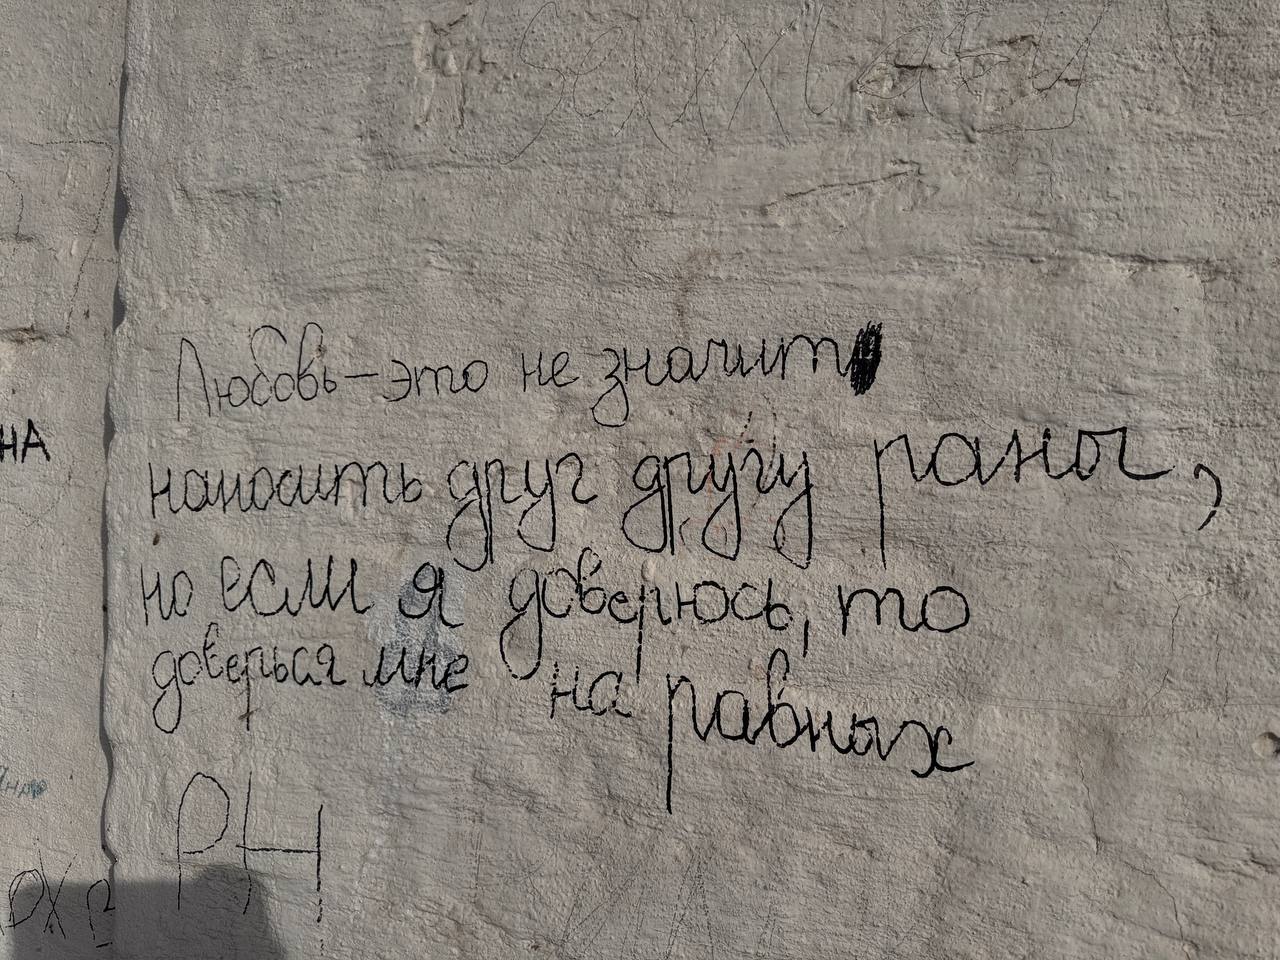 Любовь – это не значит
наносить друг другу раны,
но если я доверюсь, то
доверься мне на равных
РН
НА